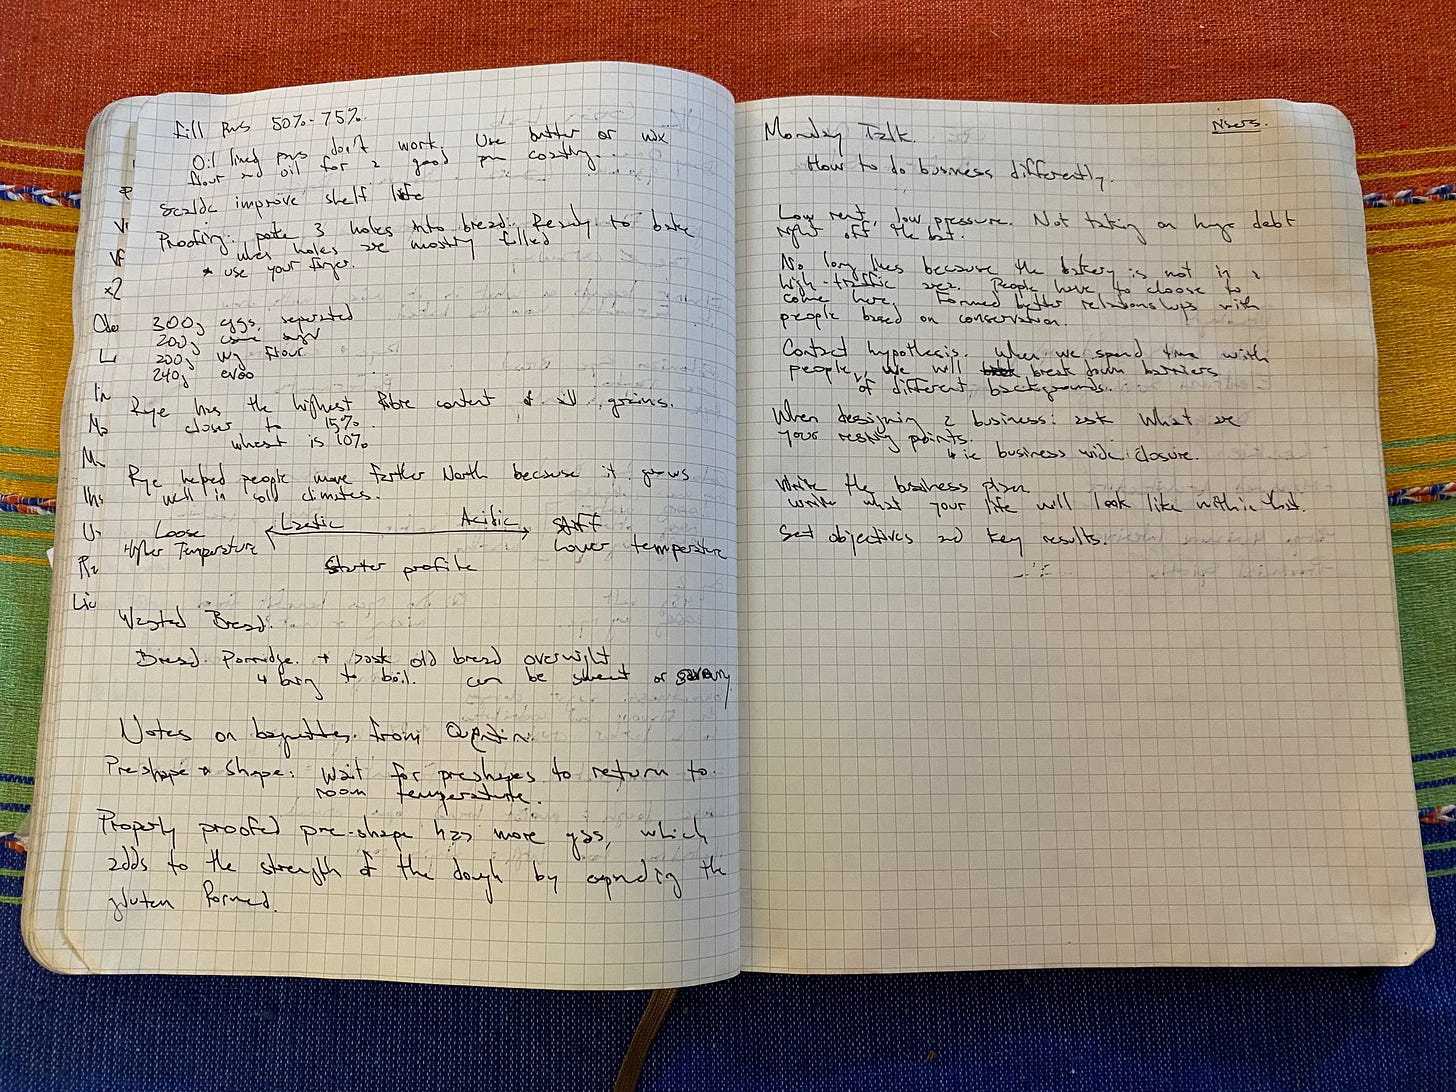 Fill pans 50%-75%.
Oil lined pans don't work. Use butter or mix
flour and oil for a good pan coating.
Scalds improve shelf life
Proofing: poke 3 holes into bread. Ready to bake
when holes are mostly filled
* use your finger.
300g eggs, separated
200g cane sugar
200g wg flour
240g evoo
Rye has the highest fibre content of all grains.
closer to 15%
wheat is 10%
Rye helped people move farther North because it grows
well in cold climates.
Loose Lactic Acitic Stiff
Higher Temperature Lower temperature
Starter profile
Wasted Bread.
Bread Porridge. soak old bread overnight
bring to boil. can be sweet or savoury.
Notes on baguettes from Quentin.
Preshape + Shape: Wait for preshapes to return to
room temperature.
Properly proofed pre-shape has more gas, which
adds to the strength of the dough by expanding the
gluten formed.
Monday Talk.
How to do business differently.
Low rent, low pressure. Not taking on huge debt
right off the bat.
No long lines because the bakery is not in a
high-traffic area. People have to choose to
come here. Formed better relationships with
people based on conservation.
Contact hypothesis. When we spend time with
people, we will break down barriers
of different backgrounds.
When designing a business: ask What are
your resting points.
ie business wide closure.
Write the business plan
Write what your life will look like within that.
Set objectives and key results.